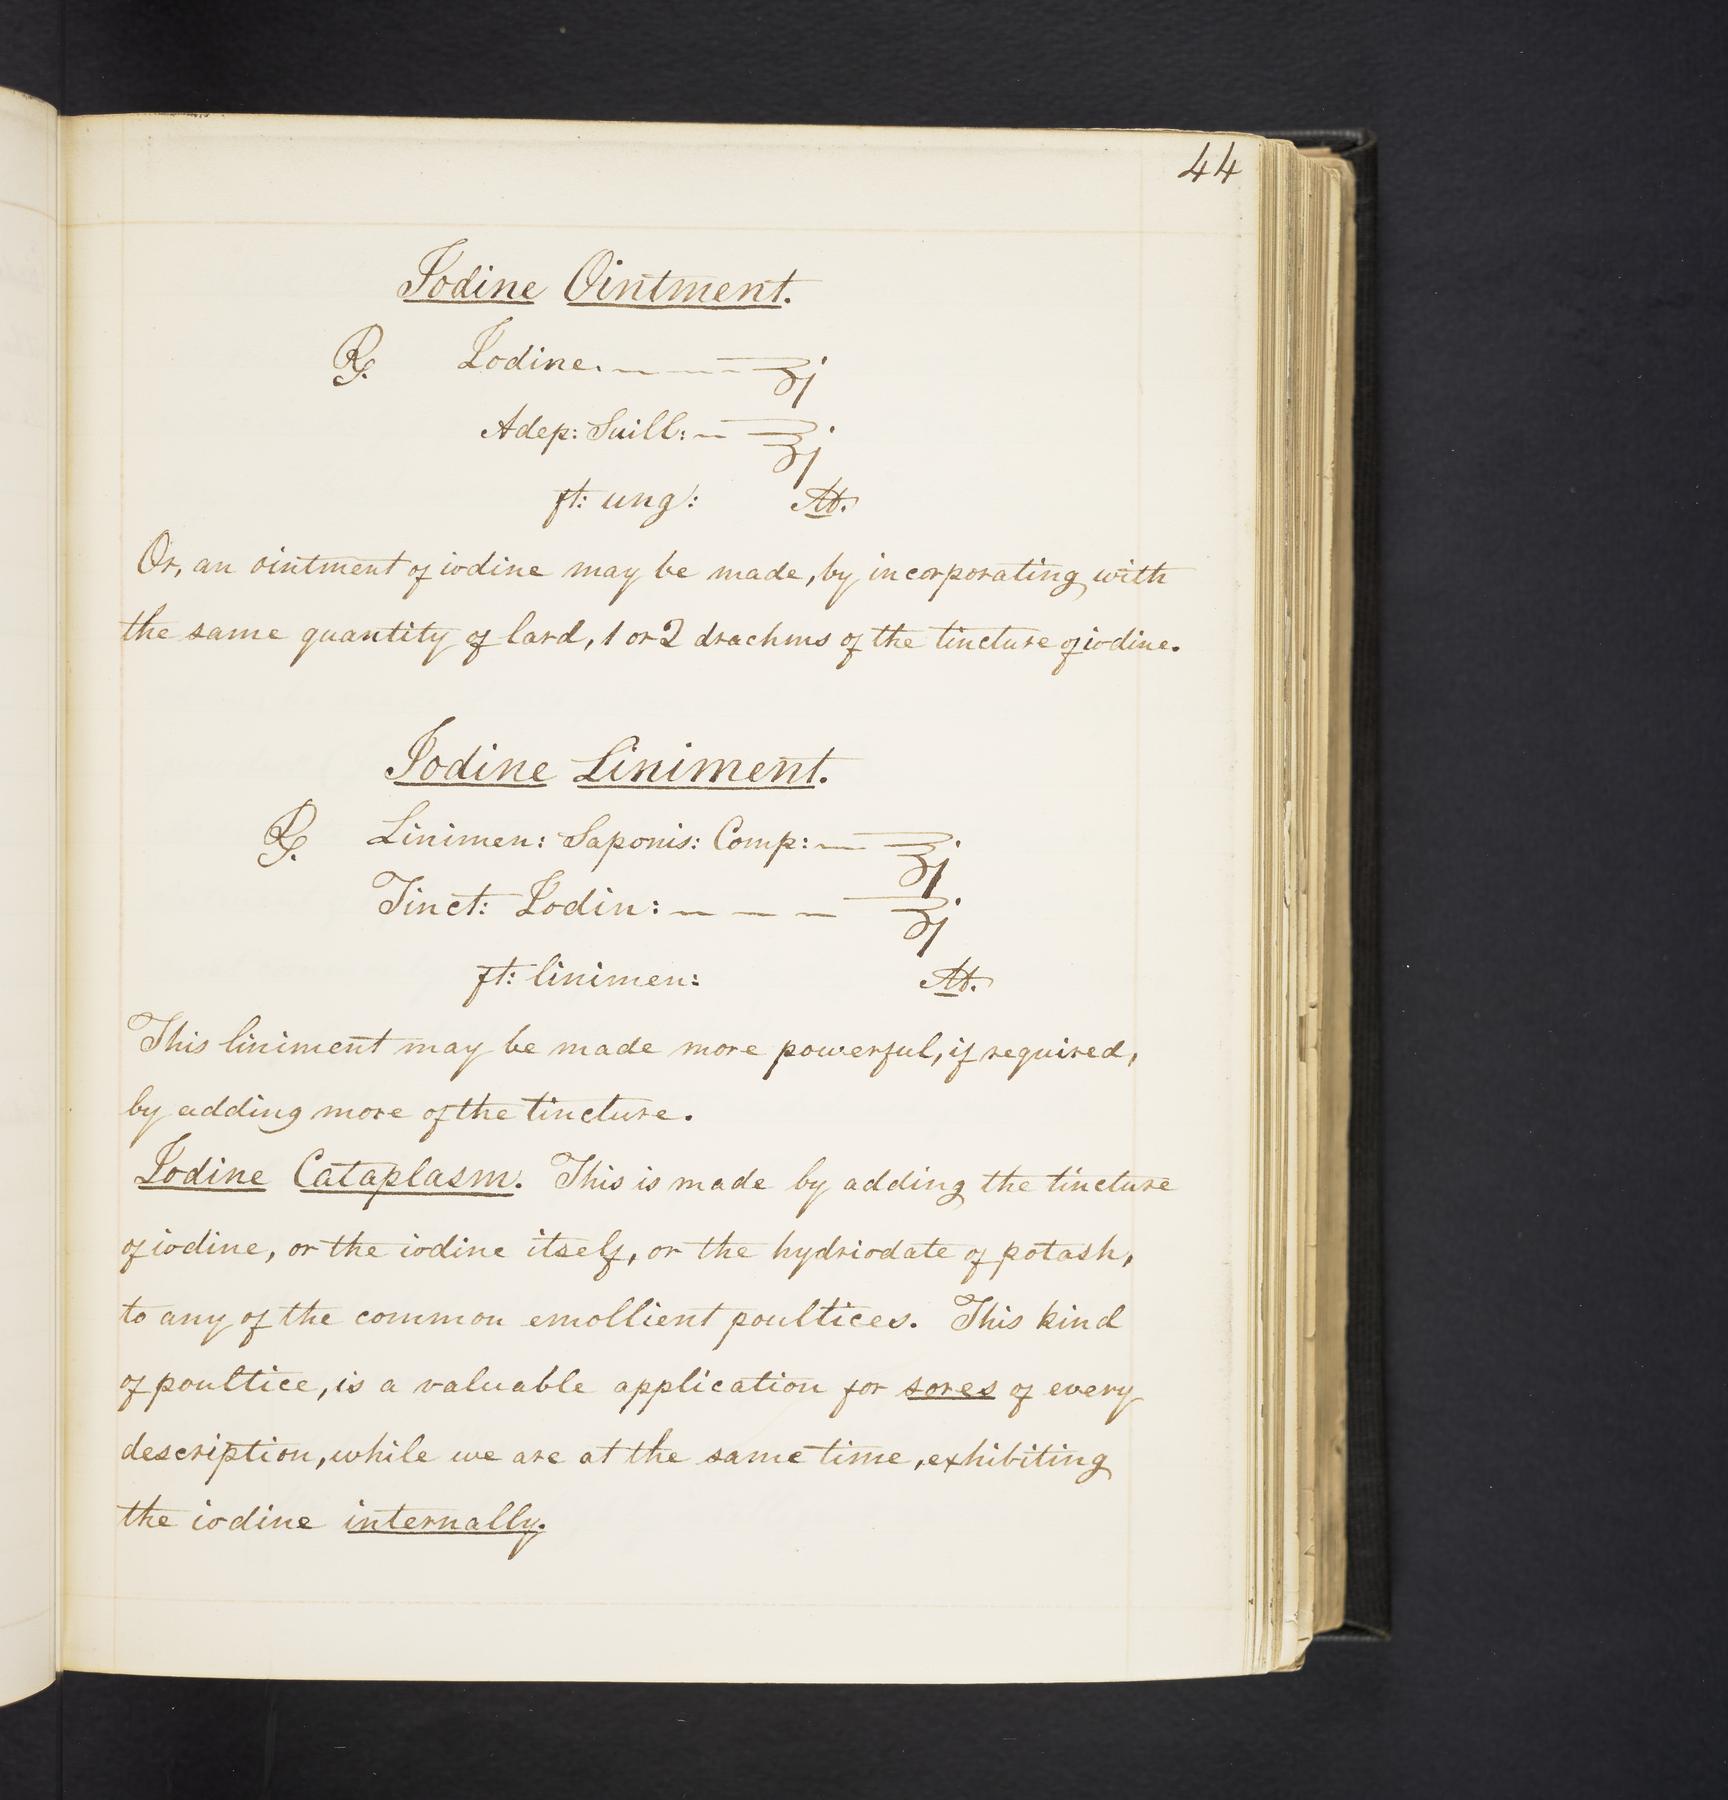 44
Iodine Ointment.
℞. Iodine. — — — ʒj
Adep: Suill: — ℥j
ft: ung: M.
Or, an ointment of iodine may be made, by incorporating with
the same quantity of lard, 1 or 2 drachms of the tincture of iodine.
Iodine Liniment.
℞. Linimen: Saponis: Comp: — ℥j
Tinct: Iodin: — — — ʒj
ft: linimen: M.
This liniment may be made more powerful, if required,
by adding more of the tincture.
Iodine Cataplasm. This is made by adding the tincture
of iodine, or the iodine itself, or the hydriodate of potash,
to any of the common emollient poultices. This kind
of poultice, is a valuable application for sores of every
description, while we are at the same time, exhibiting
the iodine internally.